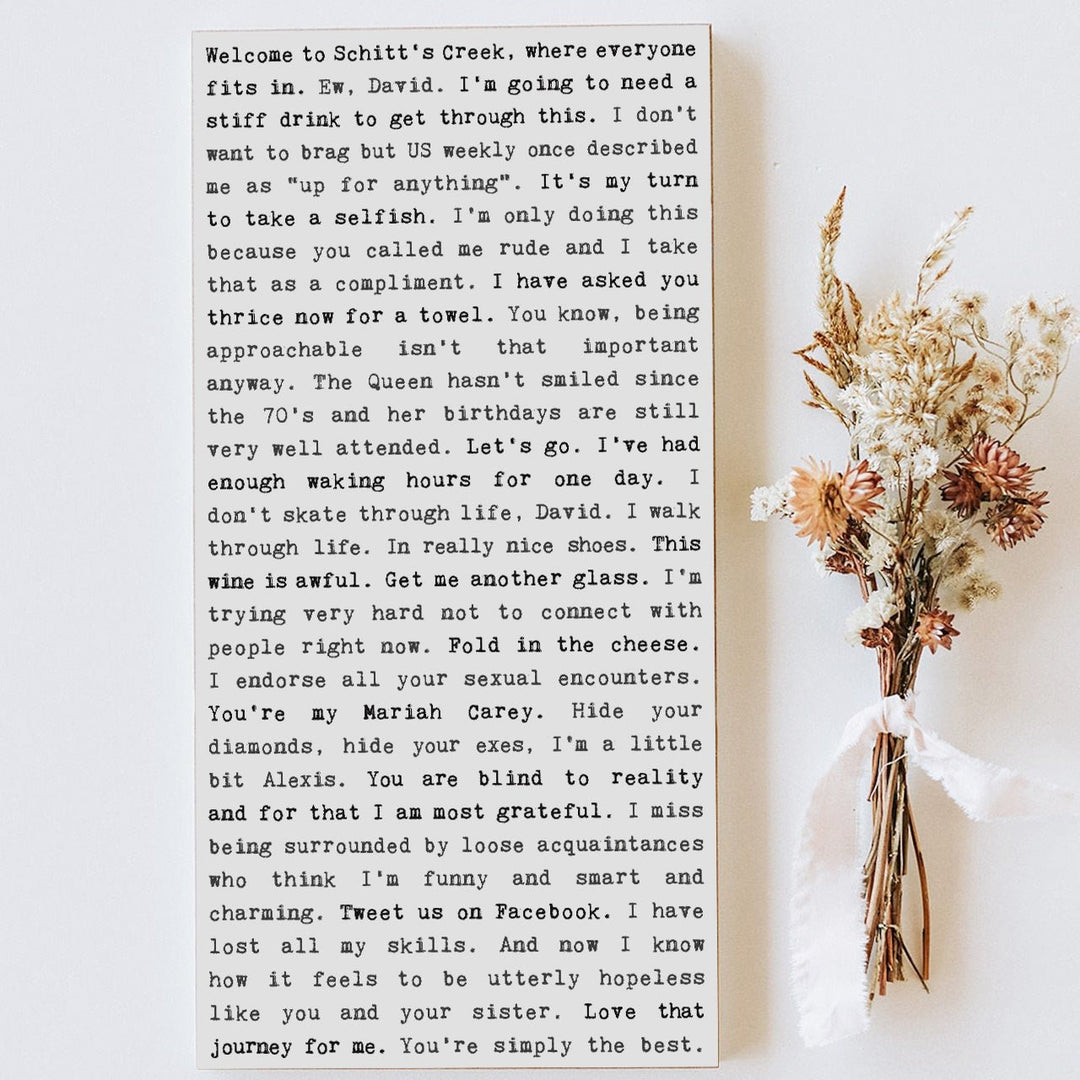 Welcome to Schitt's Creek, where everyone
fits in. Ew, David. I'm going to need a
stiff drink to get through this. I don't
want to brag but US weekly once described
me as "up for anything". It's my turn
to take a selfish. I'm only doing this
because you called me rude and I take
that as a compliment. I have asked you
thrice now for a towel. You know, being
approachable isn't that important
anyway. The Queen hasn't smiled since
the 70's and her birthdays are still
very well attended. Let's go. I've had
enough waking hours for one day. I
don't skate through life, David. I walk
through life. In really nice shoes. This
wine is awful. Get me another glass. I'm
trying very hard not to connect with
people right now. Fold in the cheese.
I endorse all your sexual encounters.
You're my Mariah Carey. Hide your
diamonds, hide your exes, I'm a little
bit Alexis. You are blind to reality
and for that I am most grateful. I miss
being surrounded by loose acquaintances
who think I'm funny and smart and
charming. Tweet us on Facebook. I have
lost all my skills. And now I know
how it feels to be utterly hopeless
like you and your sister. Love that
journey for me. You're simply the best.